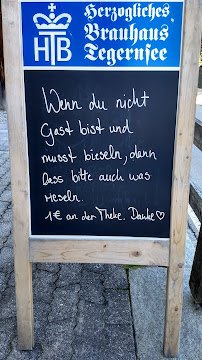 Herzogliches
Brauhaus
Tegernsee
HTB
Wenn du nicht
Gast bist und
musst bieseln, dann
lass bitte auch was
rieseln.
1€ an der Theke. Danke♡